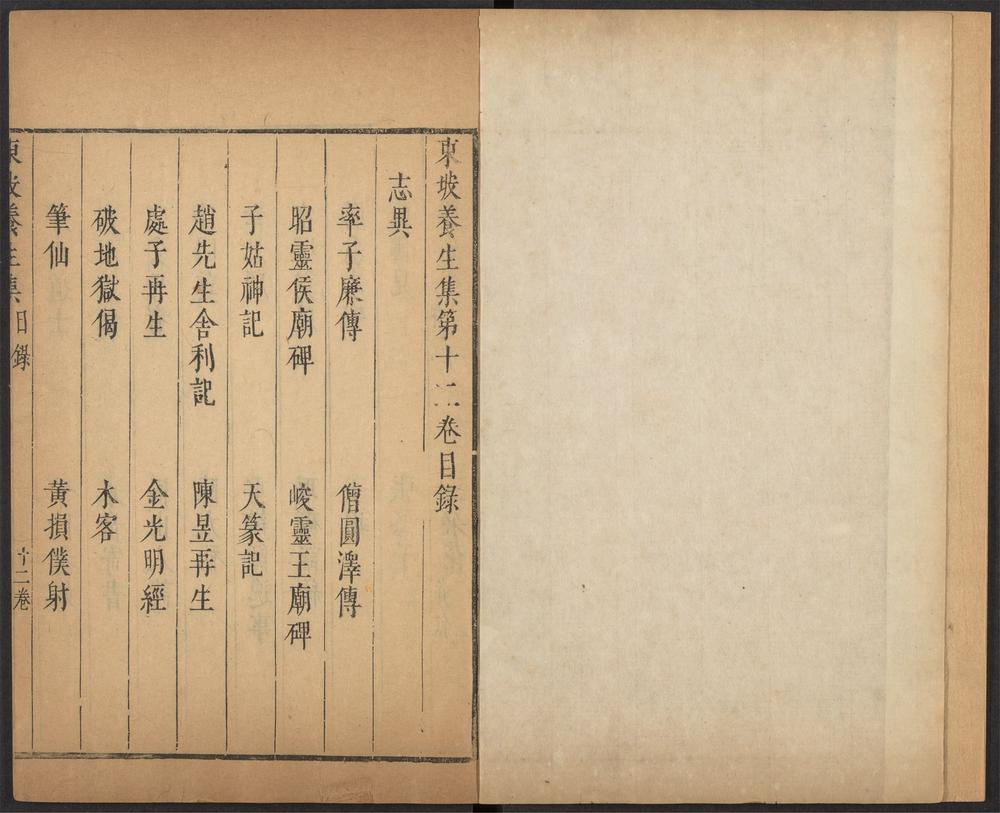 東坡養生集第十二卷目錄
志異
率子廉傳 僧圓澤傳
昭靈侯廟碑 峻靈王廟碑
子姑神記 天篆記
趙先生舍利記 陳昱再生
處子再生 金光明經
破地獄偈 木客
筆仙 黃損僕射
東坡養生集目錄 十二卷